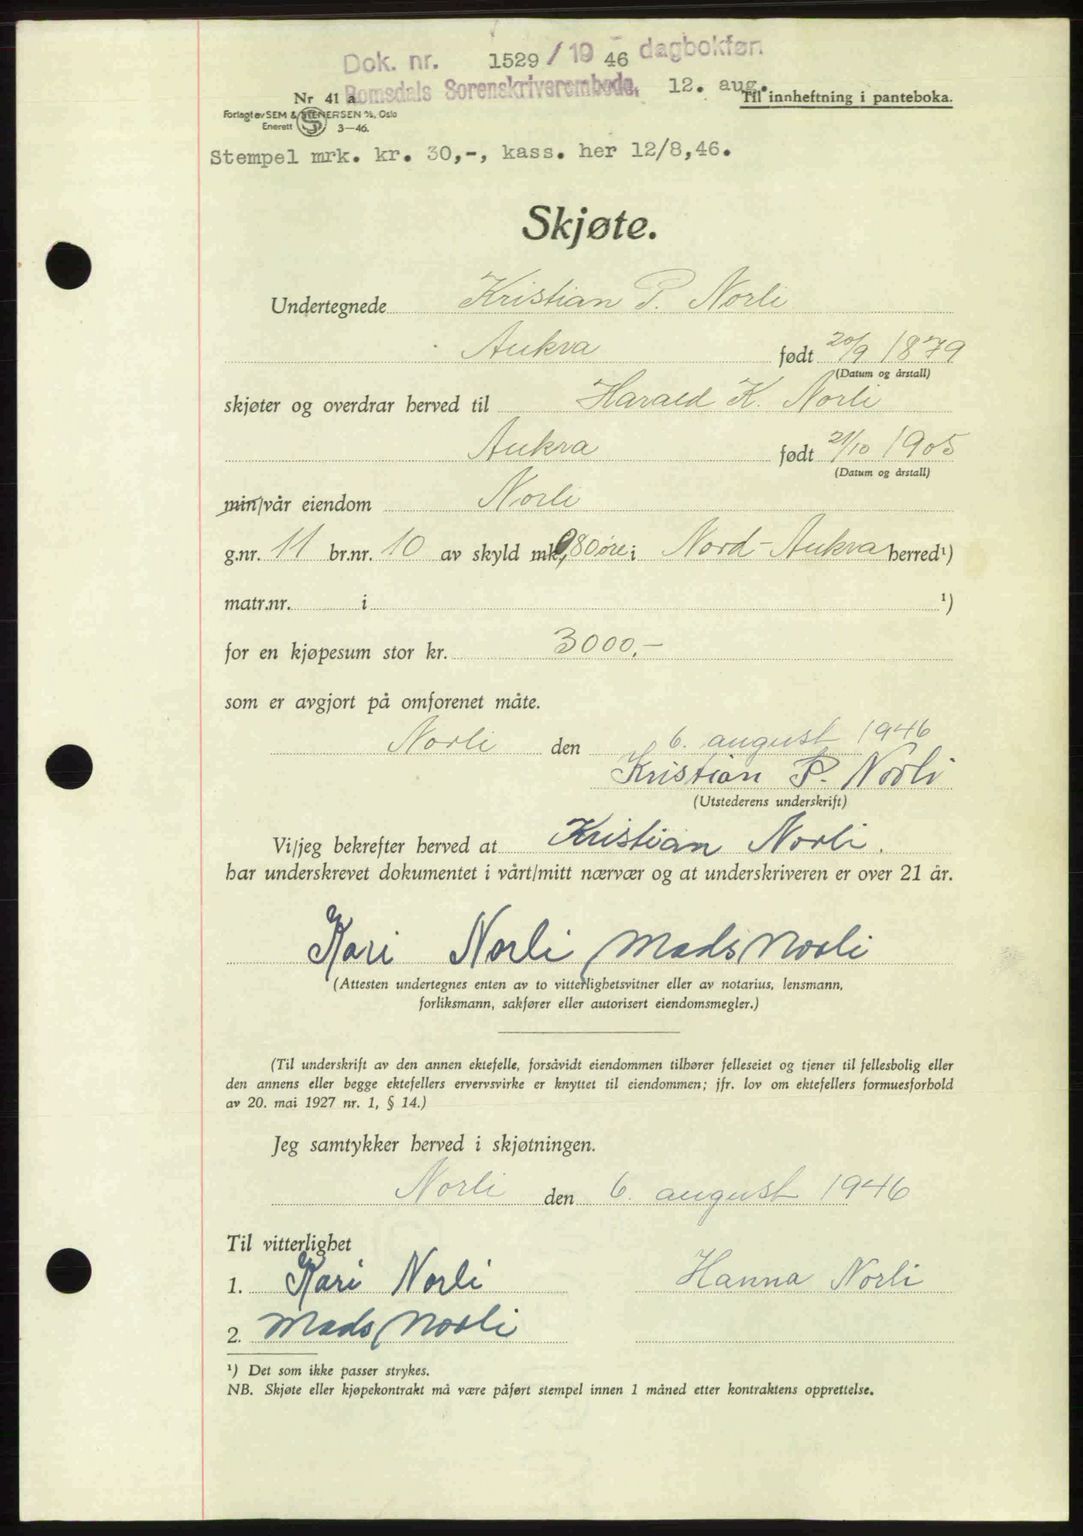 Dok. nr. 1529 / 19 46 dagbokført
Romsdals Sorenskriverembede, 12. aug.
Nr 41 a
Til innheftning i panteboka.
Forlagt av SEM & STENERSEN A/S, Oslo
Enerett 3—46.
Stempel mrk. kr. 30,-, kass. her 12/8,46.
Skjøte.
Undertegnede Kristian P. Norli
Aukra født 20/9 1879
(Datum og årstall)
skjøter og overdrar herved til Harald K. Norli
Aukra født 21/10 1905
(Datum og årstall)
min/vår eiendom Norli
g.nr. 11 br.nr. 10 av skyld mk. 0,80 øre i Nord-Aukra herred¹)
matr.nr. i ¹)
for en kjøpesum stor kr. 3000,-
som er avgjort på omforenet måte.
Norli den 6. august 1946
Kristian P. Norli
(Utstederens underskrift)
Vi/jeg bekrefter herved at Kristian Norli.
har underskrevet dokumentet i vårt/mitt nærvær og at underskriveren er over 21 år.
Kari Norli Mads Norli
(Attesten undertegnes enten av to vitterlighetsvitner eller av notarius, lensmann,
forliksmann, sakfører eller autorisert eiendomsmegler.)
(Til underskrift av den annen ektefelle, forsåvidt eiendommen tilhører felleseiet og tjener til fellesbolig eller
den annens eller begge ektefellers ervervsvirke er knyttet til eiendommen; jfr. lov om ektefellers formuesforhold
av 20. mai 1927 nr. 1, § 14.)
Jeg samtykker herved i skjøtningen.
Norli den 6. august 1946
Til vitterlighet
1. Kari Norli Hanna Norli
2. Mads Norli
¹) Det som ikke passer strykes.
NB. Skjøte eller kjøpekontrakt må være påført stempel innen 1 måned etter kontraktens opprettelse.